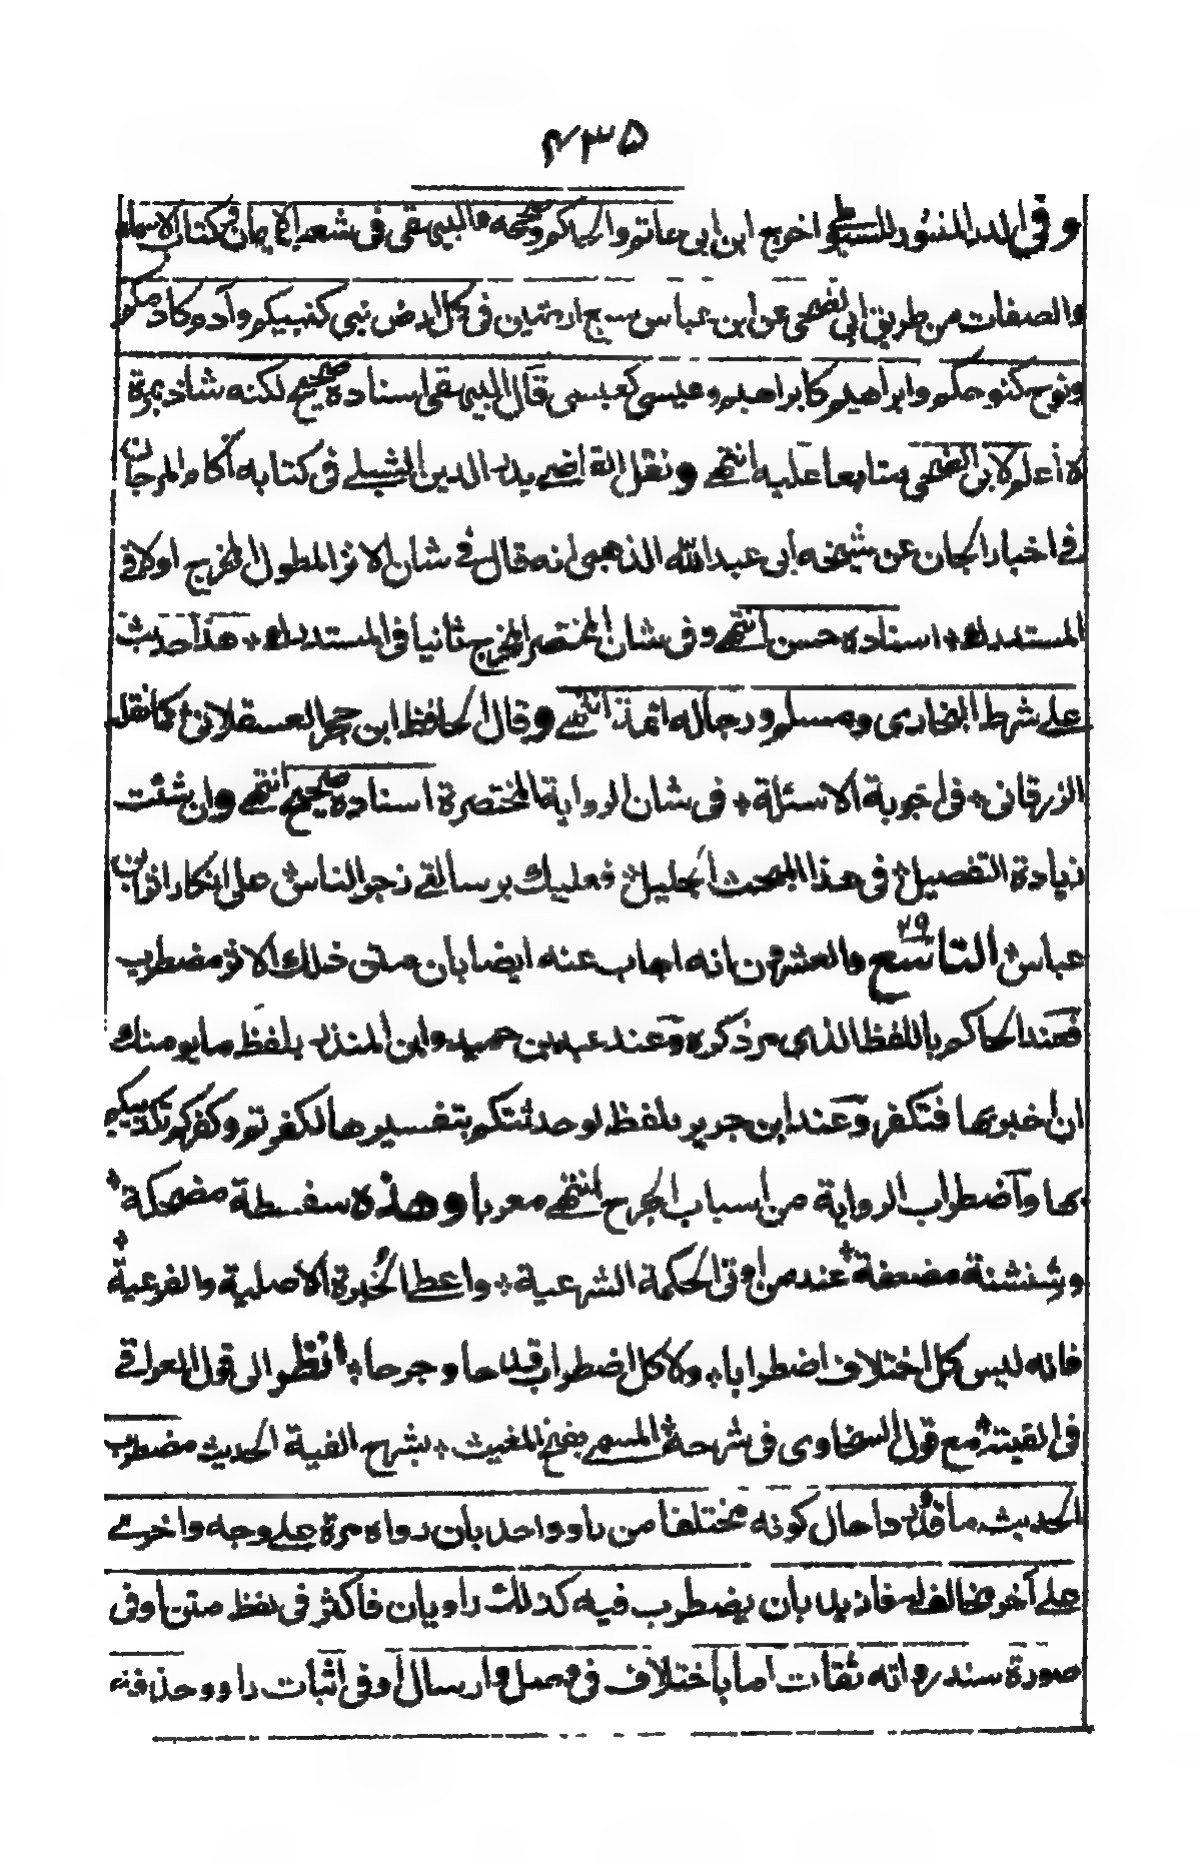 ۴۳۵
وفى الدر المنثور للسيوطى اخرج ابن ابى حاتم والحاكم وصححه والبيهقى فى شعب الايمان وفى كتاب الاسماء
والصفات من طريق ابى الضحى عن ابن عباس سبع ارضين فى كل ارض نبى كنبيكم وآدم كادمكم
ونوح كنوحكم وابراهيم كابراهيم وعيسى كعيسى قال البيهقى اسناده صحيح لكنه شاذ بمرة
لا أعلم لابى الضحى متابعا عليه انتهى ونقل القاضى بدر الدين الشبلى فى كتابه آكام المرجان
فى اخبار الجان عن شيخه ابى عبد الله الذهبى انه قال فى شان الاثر المطول المخرج اولا فى
المستدرك + اسناده حسن انتهى وفى شان المختصر المخرج ثانيا فى المستدرك + هذا حديث
على شرط البخارى ومسلم ورجاله ائمة انتهى وقال الحافظ ابن حجر العسقلانى كما نقله
الزرقانى + فى اجوبة الاسئلة + فى شان الرواية المختصرة اسناده صحيح انتهى وان شئت
زيادة التفصيل فى هذا المبحث الجليل فعليك برسالتى زجر الناس على انكار اثر ابن
عباس التاسع ٢٩ والعشرون انه اجاب عنه ايضا بان متن ذلك الاثر مضطرب
فعند الحاكم باللفظ الذى مر ذكره وعند عبد بن حميد وابن المنذر بلفظ ما يومنك
ان اخبر بها فتكفر وعند ابن جرير بلفظ لو حدثتكم بتفسيرها لكفرتم وكفركم تكذيبكم
بها واضطراب الرواية من اسباب الجرح انتهى معربا وهذه سفسطة مضحكة +
وشنشنة مضعفة + عند من اوتى الحكمة الشرعية + واعطى الخبرة الاصلية والفرعية +
فانه ليس كل اختلاف اضطرابا + ولا كل اضطراب قدحا وجرحا + انظر الى قول العراقى
فى الفيته مع قول السخاوى فى شرحه المسمى بفتح المغيث + بشرح الفية الحديث مضطرب
الحديث ما قد وردا حال كونه مختلفا من راو واحد بان رواه مرة على وجه واخرى
على آخر مخالف له فازيد بان يضطرب فيه كذلك راويان فاكثر فى لفظ متن او فى
صورة سند رواته ثقات اما باختلاف فى وصل وارسال او فى اثبات راو وحذفه